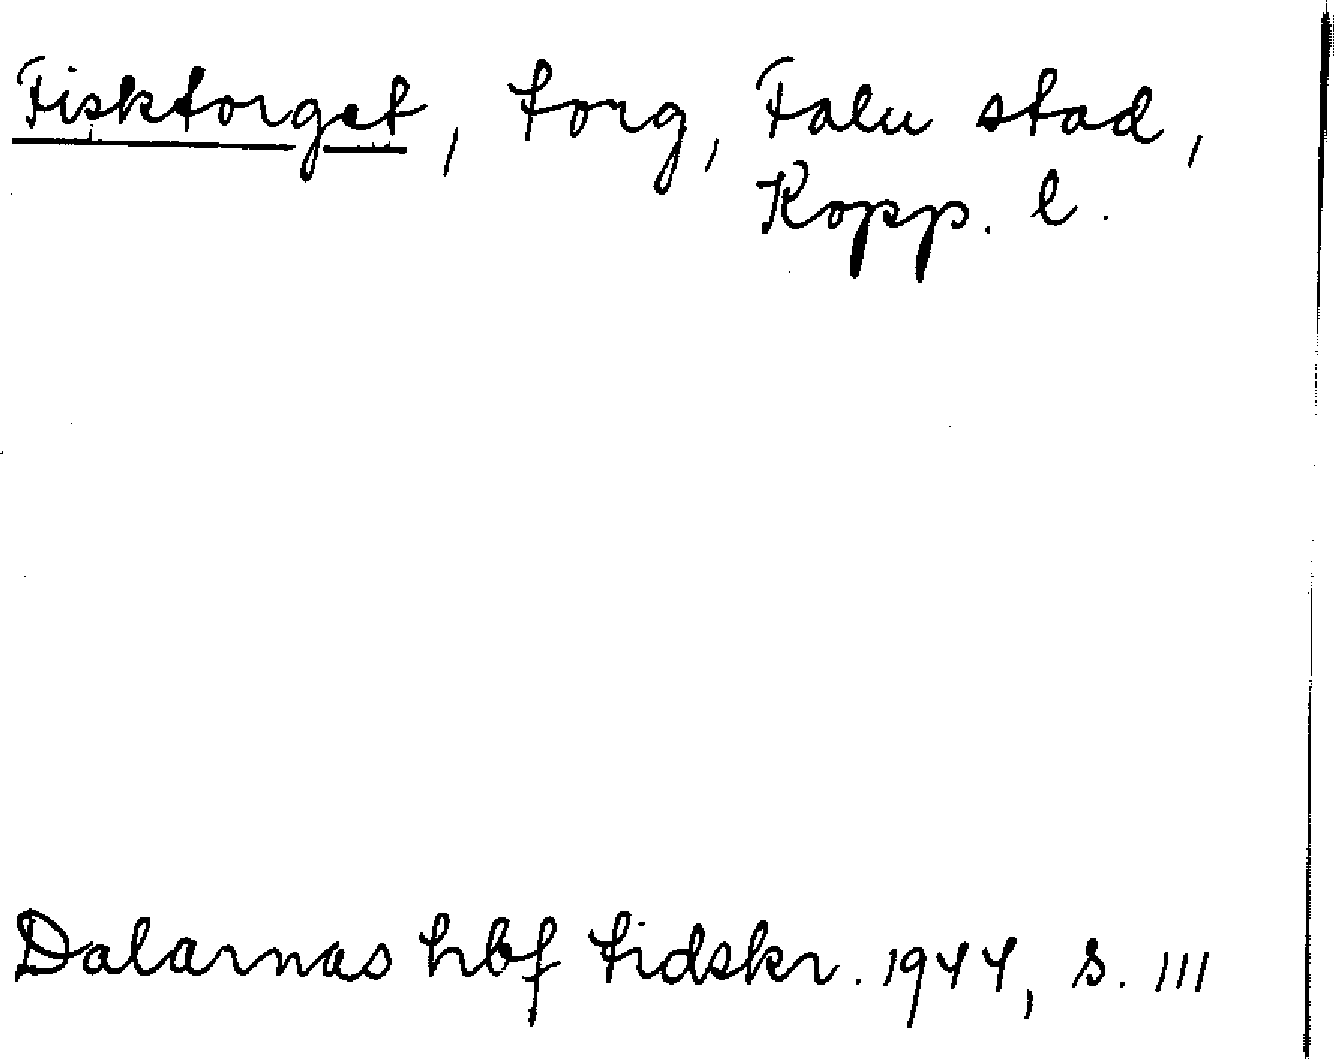 Fisktorget, torg, Falu stad,
Kopp. l.
Dalarnas hbf tidskr. 1944, s. 111